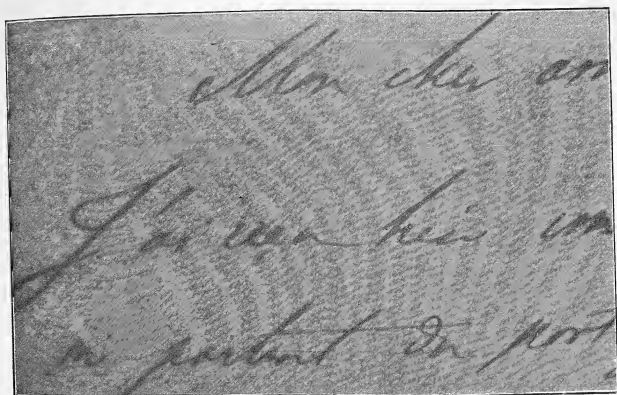 Mon cher am
J'ai reçu hier un
partant du port